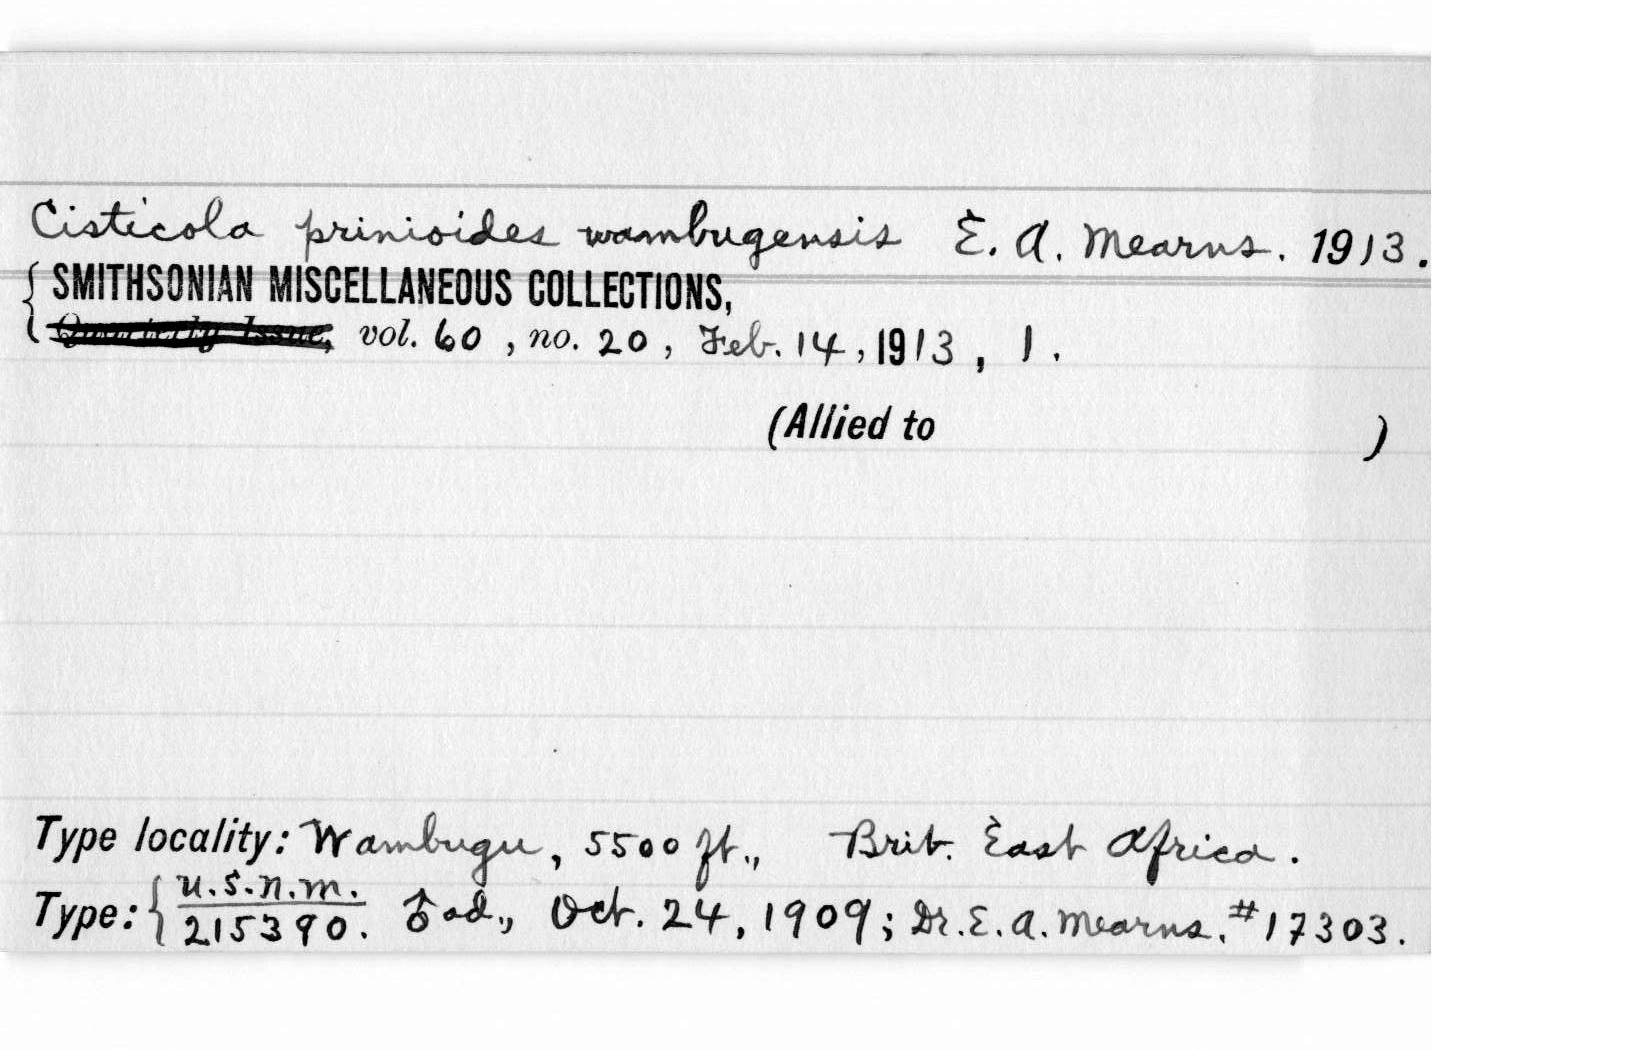 Cisticola prinioides wambugensis E. A. Mearns. 1913.
{ SMITHSONIAN MISCELLANEOUS COLLECTIONS,
Quarterly Issue, vol. 60, no. 20, Feb. 14, 1913, 1.
(Allied to )
Type locality: Wambugu, 5500 ft., Brit. East Africa.
Type: { U.S.N.M.
215390. ♂ ad., Oct. 24, 1909; Dr. E. A. Mearns. #17303.